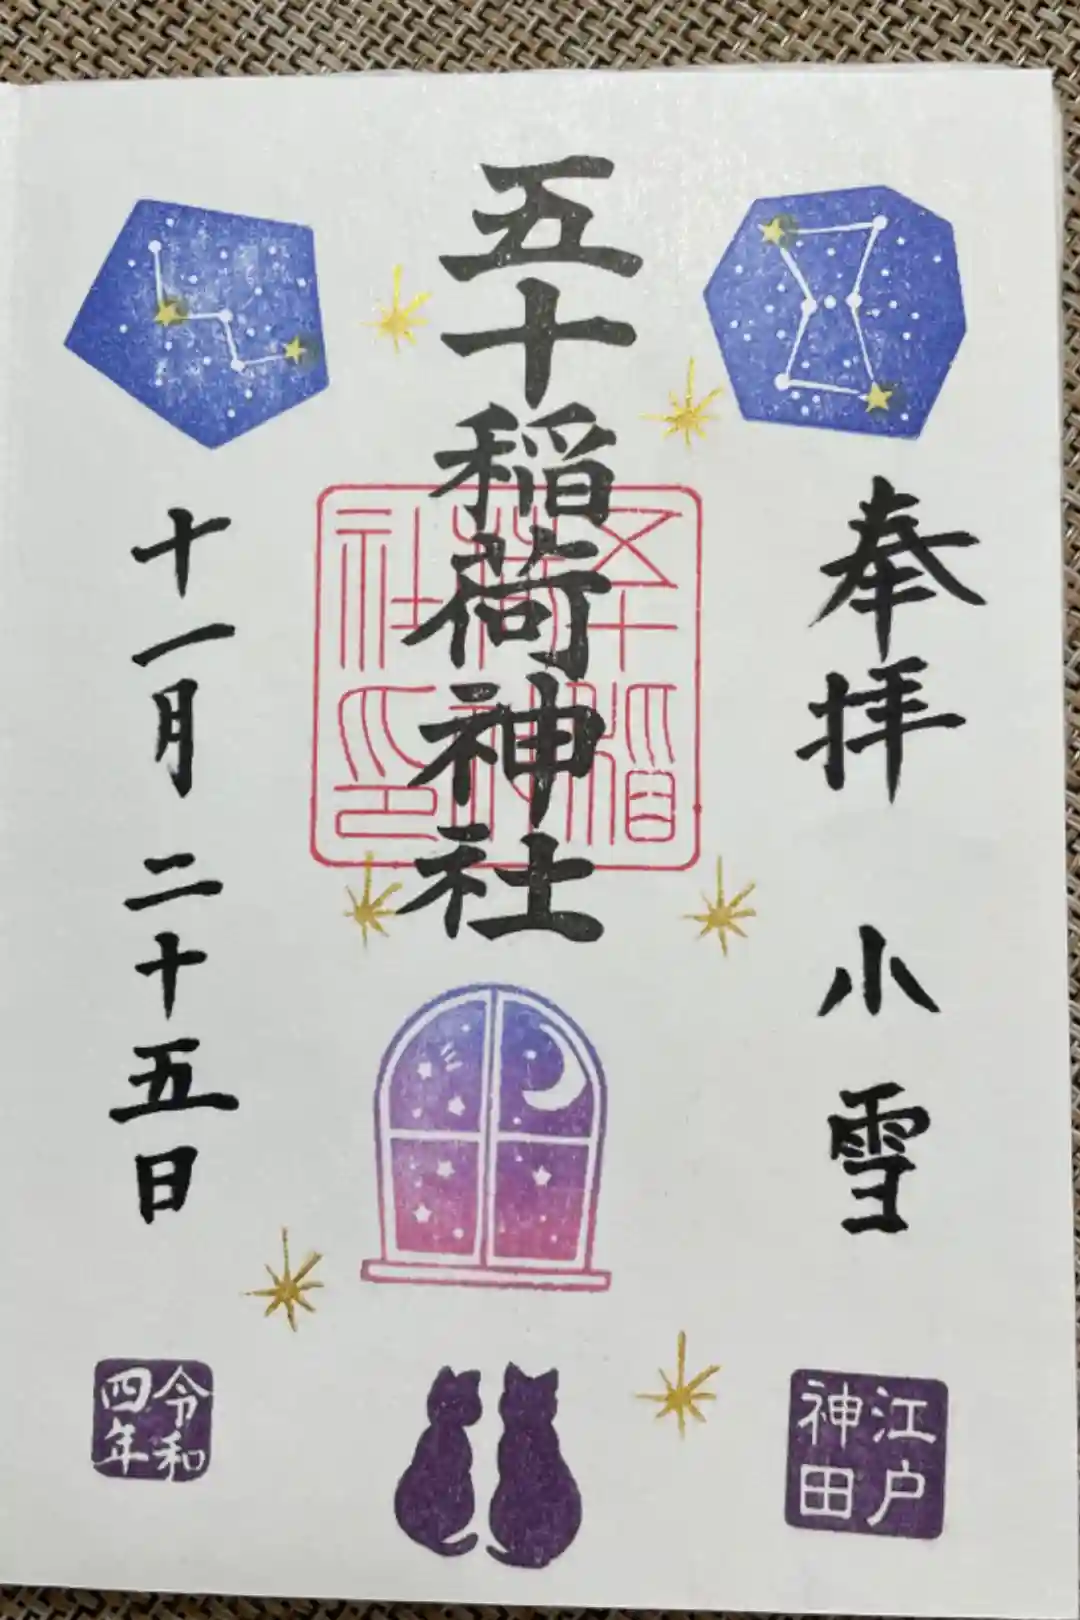 奉拝 小雪
江戸
神田
五十稲荷神社
五十稲
荷神
社印
十一月二十五日
令和
四年